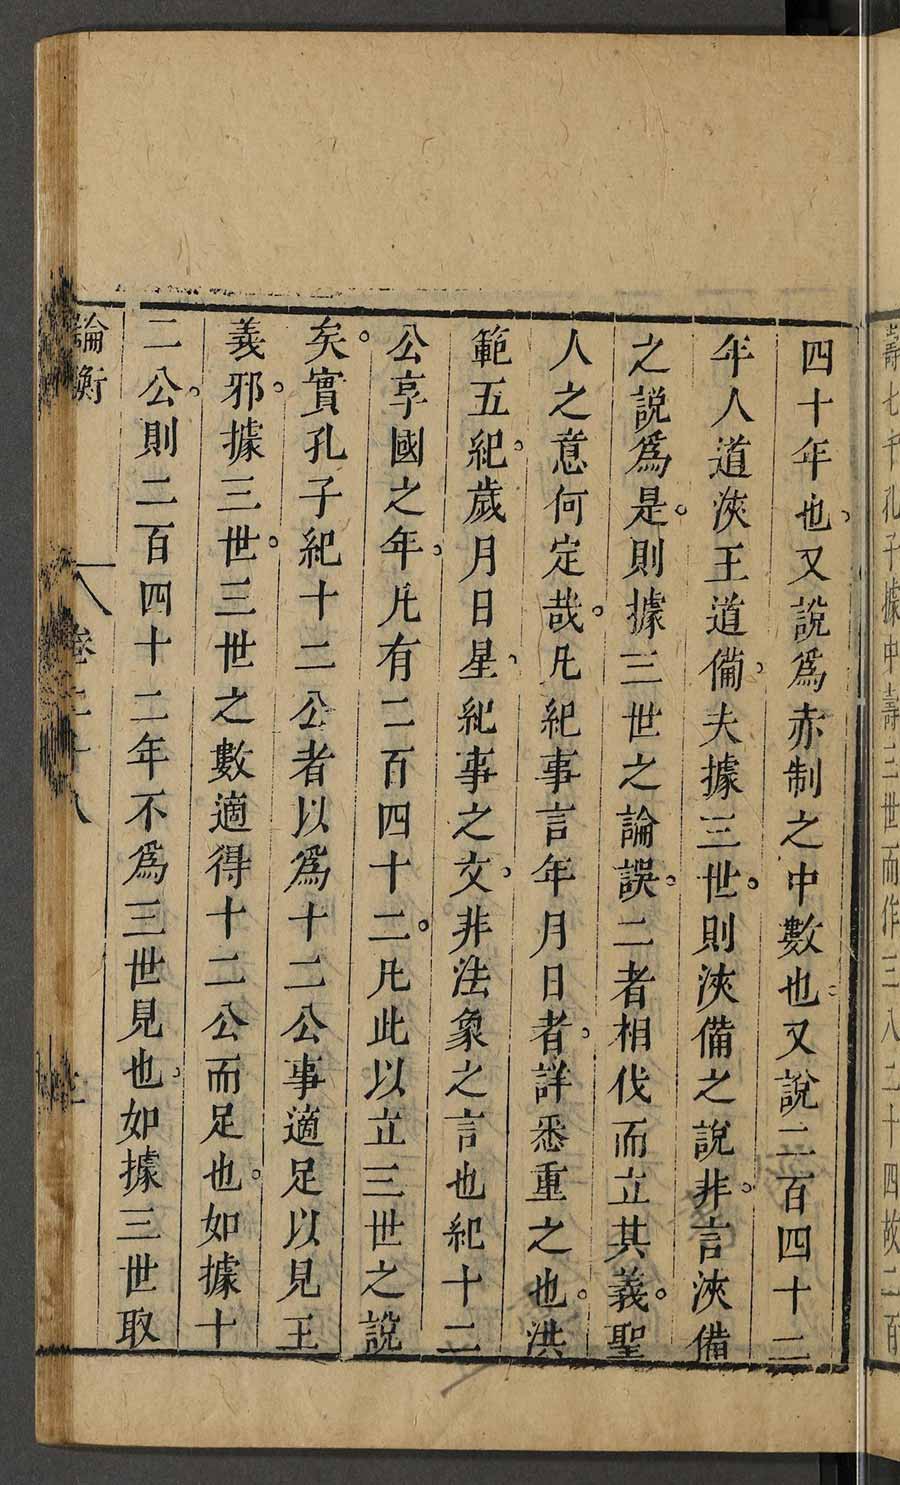 壽七十孔子據中壽三世而作三八二十四故二百
四十年也又說爲赤制之中數也又說二百四十二
年人道浹王道備夫據三世則浹備之說非言浹備
之說爲是則據三世之論誤二者相伐而立其義聖
人之意何定哉凡紀事言年月日者詳悉重之也洪
範五紀歲月日星紀事之文非法象之言也紀十二
公享國之年凡有二百四十二凡此以立三世之說
矣實孔子紀十二公者以爲十二公事適足以見王
義邪據三世三世之數適得十二公而足也如據十
二公則二百四十二年不爲三世見也如據三世取
論衡 卷二十八